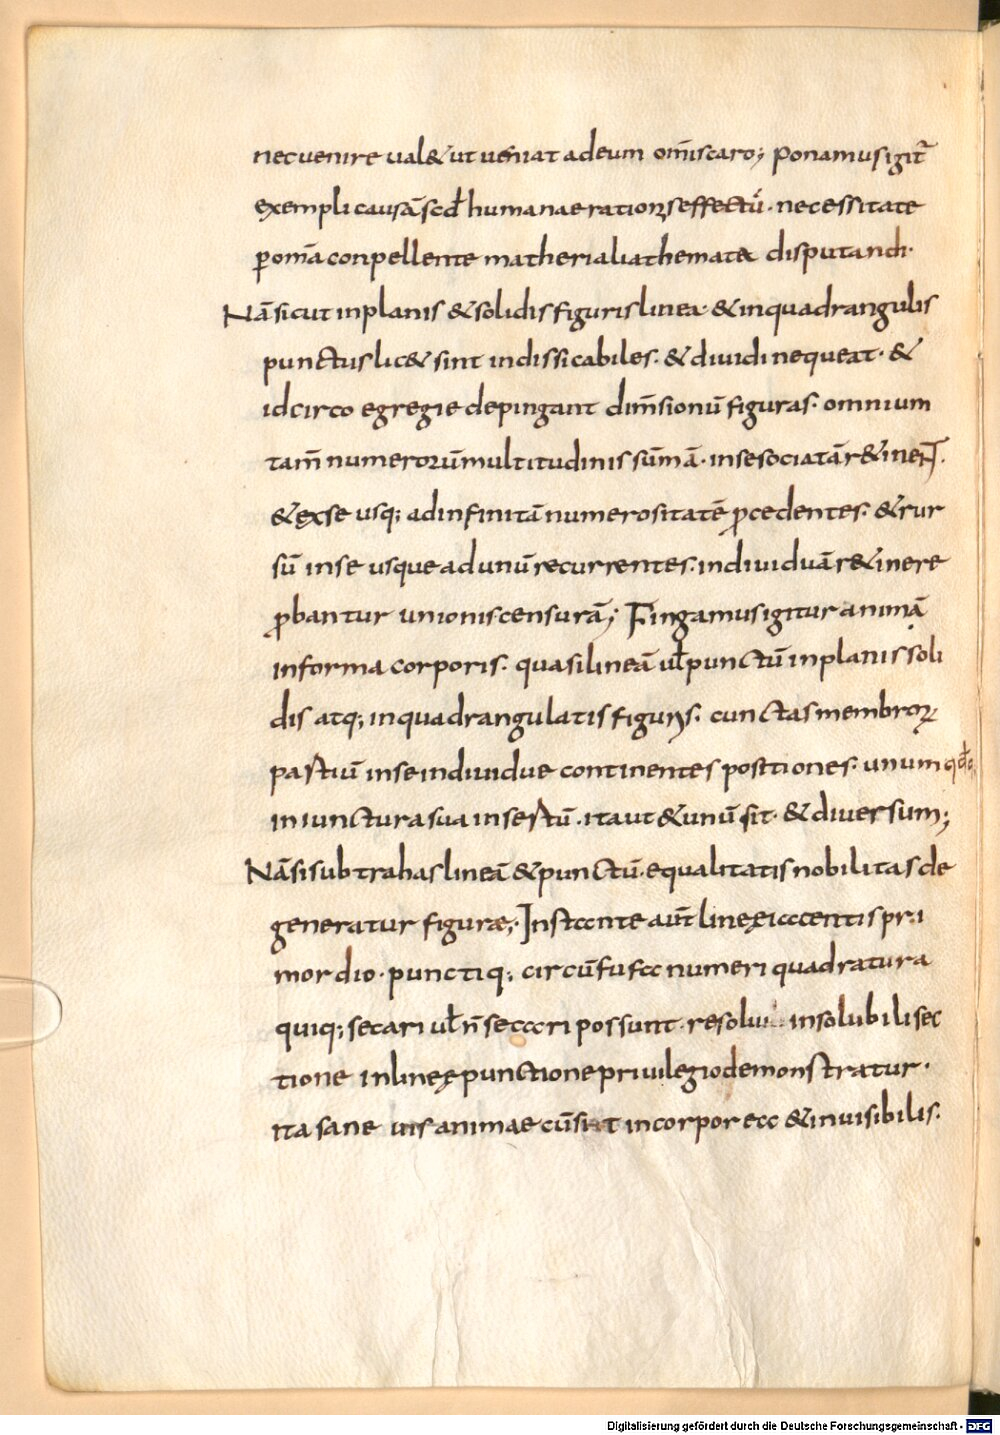 nec uenire ual& ut ueniat adeum om̄is caro; ponamus igit̄
exempli causā scđ humanae rationꝝ effectū· necessitate
ꝑ omā conpellente matheriali athemate disputandi·
Nā sicut inplanis & solidis figuris linea· & inquadrangulis
punctus lic& sint indissicabiles· & diuidi nequeat· &
idcirco egregie depingant dim̄sionū figuras· omnium
tam̄ numerorū multitudinis sūmā· inse sociatā r&iner̄·
& exse usq; adinfinitā numerositatē ꝓcedentes· & rur
sū inse usque ad unū recurrentes· indiuiduā r&inere
ꝓbantur unionis censurā; Fingamus igitur animā
informa corporis· quasi lineā uł punctū inplanis soli
dis atq; inquadrangulatis figuris· cunctas membroꝝ
partiū inse indiuidue continentes positiones· unum qđq;
iniunctura sua insertū· ita ut & unū sit· & diuersum;
Nā si subtrahas lineā & punctū· equalitatis nobilitas de
generatur figuræ; Instante aut̄ lineę iacentis pri
mordio· punctiq; circūfusa numeri quadratura
quiq; secari uł n̄ secari possunt· insolubili sec
tione inlineę punctione priuilegio demonstratur·
ita sane uis animae cū sit incorporea & inuisibilis·
Digitalisierung gefördert durch die Deutsche Forschungsgemeinschaft - DFG